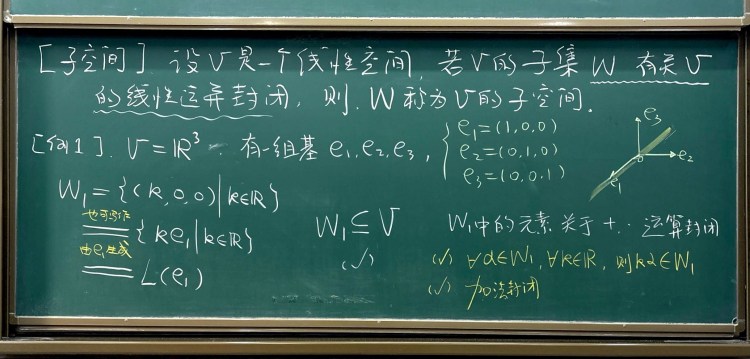 [子空间] 设V是一个线性空间, 若V的子集 W 有关V
的线性运算封闭, 则. W称为V的子空间.
[例1]. V=ℝ³. 有一组基 e₁,e₂,e₃, { e₁=(1,0,0)
e₂=(0,1,0)
e₃=(0,0,1)
e₃
e₂
e₁
W₁={(k,0,0)|k∈ℝ}
也可写作
={ke₁|k∈ℝ}
由e₁生成
=L(e₁)
W₁⊆V
(✓)
W₁中的元素关于+.· 运算封闭
(✓) ∀α∈W₁, ∀k∈ℝ, 则kα∈W₁
(✓) 加法封闭